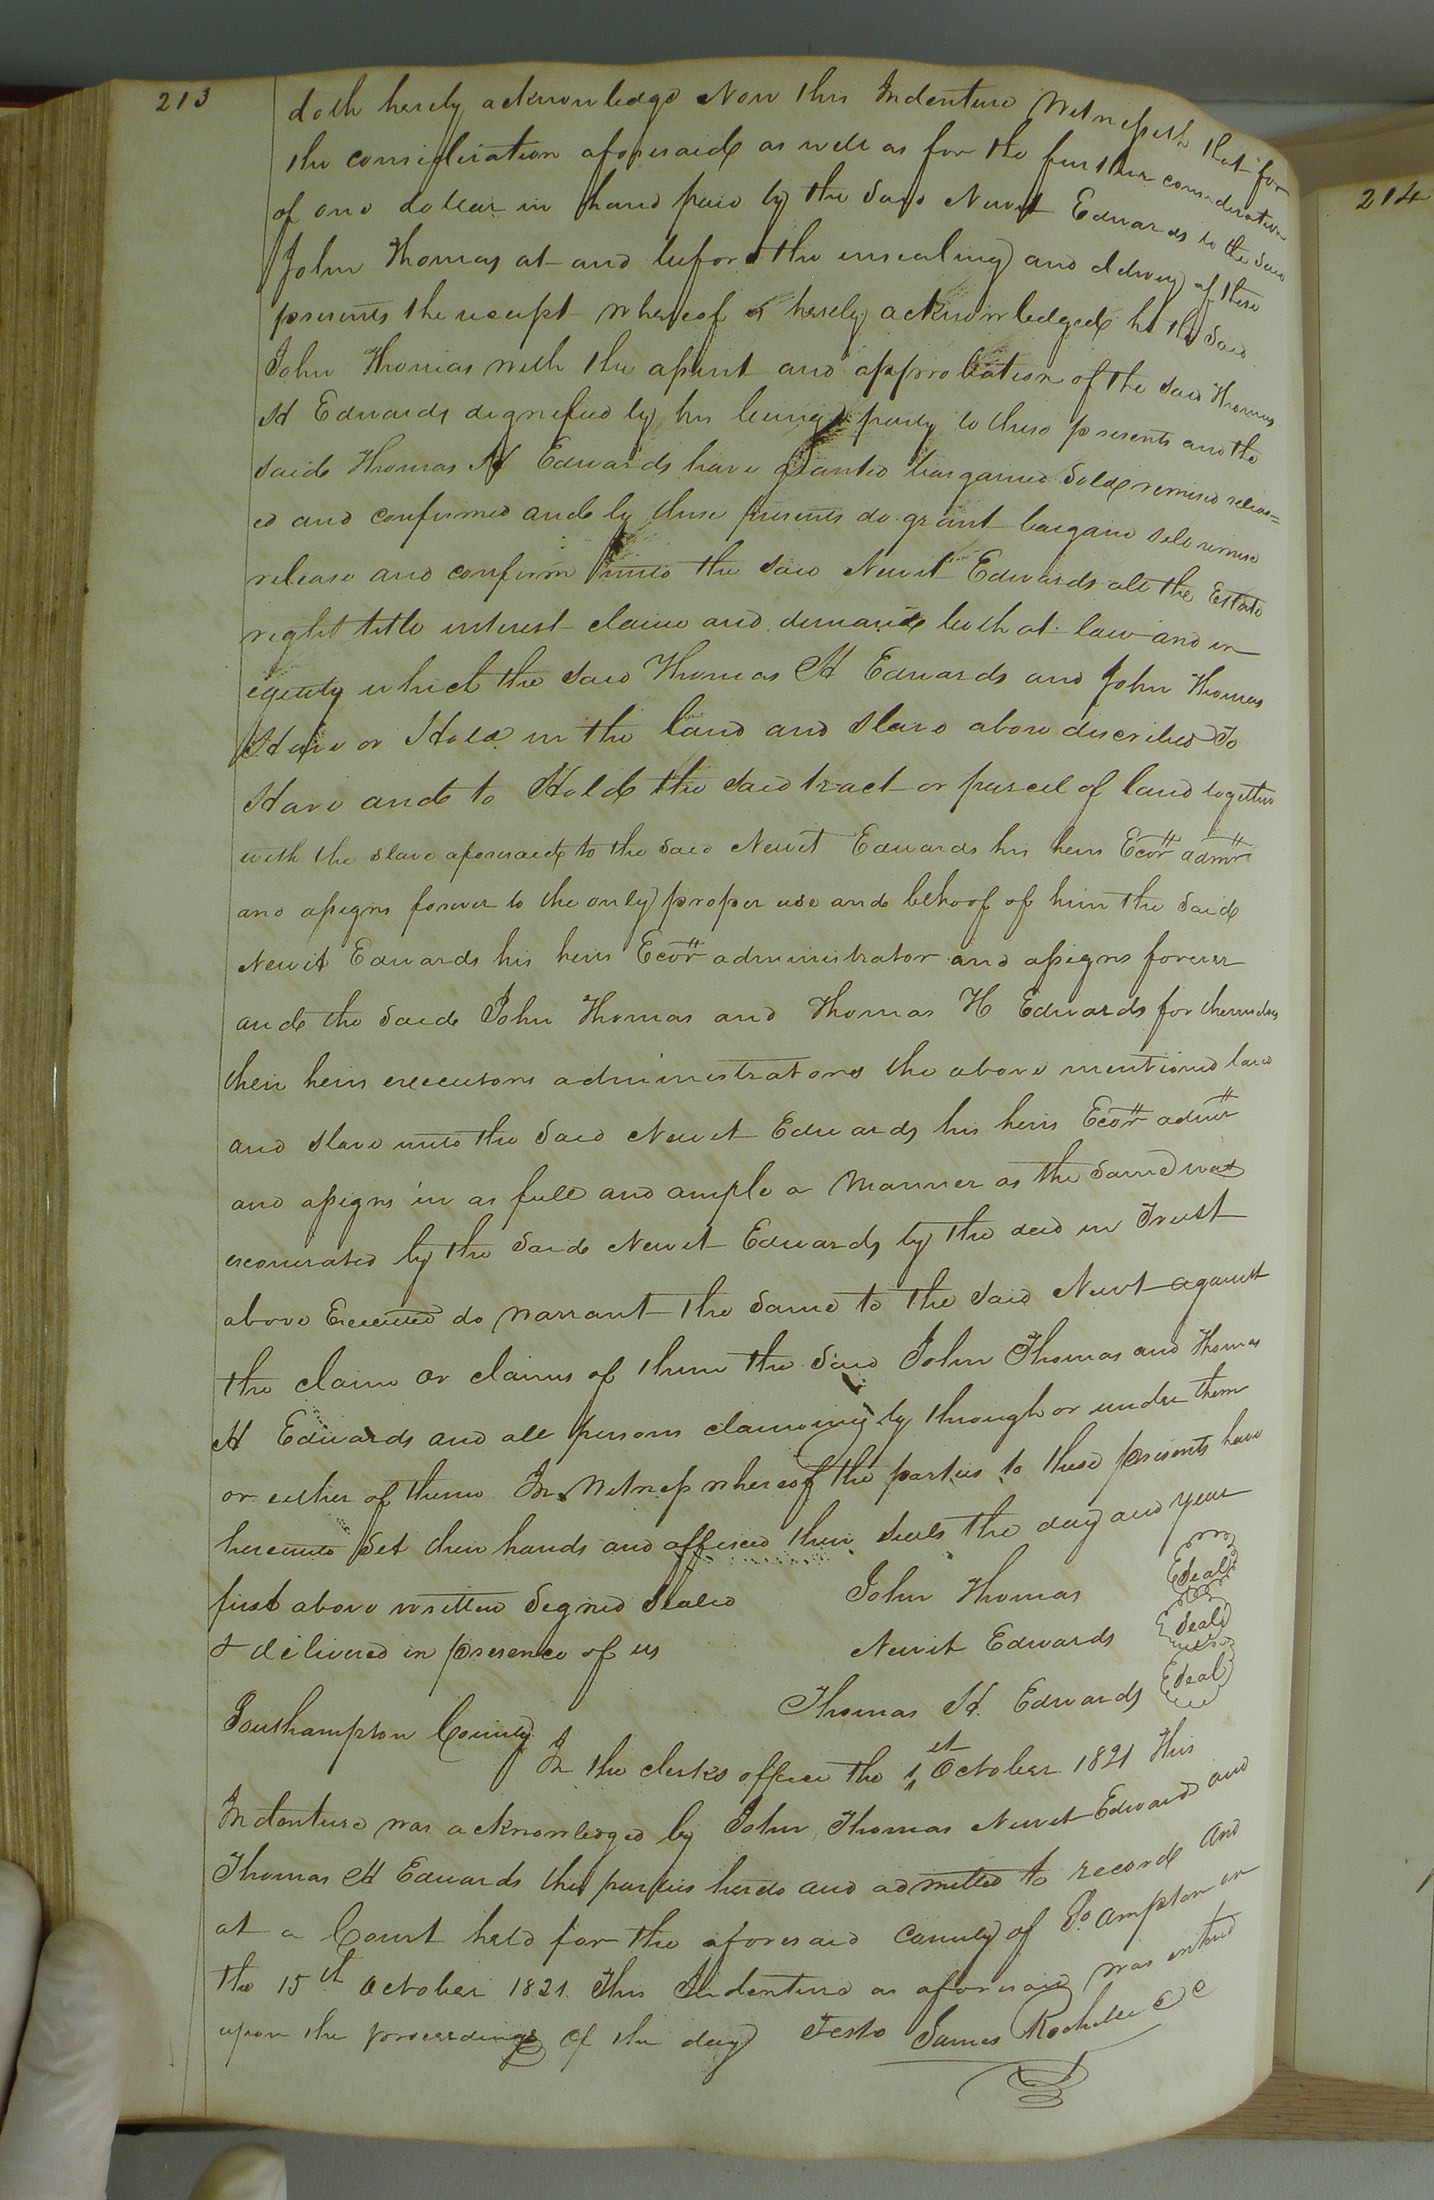 213
doth hereby acknowledge Now this Indenture Witnesseth that for
the consideration aforesaid as well as for the further consideration
of one dollar in hand paid by the said Newit Edwards to the said
John Thomas at and before the ensealing and delivery of these
presents the receipt whereof is hereby acknowledged he the said
John Thomas with the assent and approbation of the said Thomas
H Edwards signified by his being party to these presents and the
said Thomas H Edwards have granted bargained sold remised releas=
ed and confirmed and by these presents do grant bargain sell remise
release and confirm unto the said Newit Edwards all the Estate
right title interest claim and demand both at law and in
equity which the said Thomas H Edwards and John Thomas
Have or Hold in the land and slave above described To
Have and to Hold the said tract or parcel of land together
with the slave aforesaid to the said Newit Edwards his heirs Ecors admrs
and assigns forever to the only proper use and behoof of him the said
Newit Edwards his heirs Ecors administrator and assigns forever
and the said John Thomas and Thomas H Edwards for themselves
their heirs executors administrators the above mentioned land
and slave unto the said Newit Edwards his heirs Ecors admrs
and assigns in as full and ample a Manner as the same was
by the said Newit Edwards by the deed in Trust
above do warrant the same to the said Newt against
the claim or claims of them the said John Thomas and Thomas
H Edwards and all persons claiming by through or under them
or either of them In Witness whereof the parties to these presents have
hereunto set their hands and affixed their seals the day and year
first above written Signed Sealed John Thomas Seal
& delivered in presence of us Newit Edwards Seal
Thomas H. Edwards Seal
Southampton County
In the clerks office the 1st October 1821 This
Indenture was acknowledged by John Thomas Newit Edward and
Thomas H Edwards the parties hereto and admitted to record And
at a Court held for the aforesaid County of Soampton on
the 15th October 1821. This Indenture as aforesaid was entered
upon the proceedings of the day Teste James Rochelle CC
214